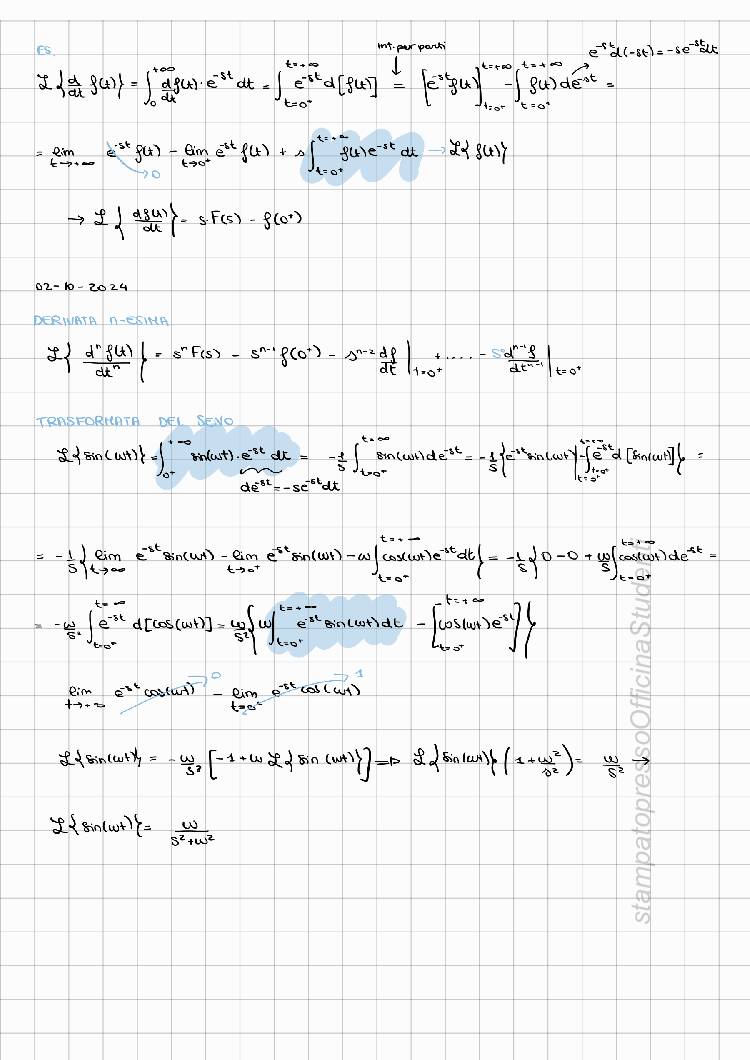 ES.
int. per parti
e^-st d(-st) = -se^-st dt
ℒ{d/dt f(t)} = ∫_0^+∞ df(t)/dt · e^-st dt = ∫_{t=0⁺}^{t=+∞} e^-st d[f(t)] = [e^-st f(t)]_{t=0⁺}^{t=+∞} - ∫_{t=0⁺}^{t=+∞} f(t) de^-st =
= lim_{t→+∞} e^-st f(t) - lim_{t→0⁺} e^-st f(t) + s ∫_{t=0⁺}^{t=+∞} f(t) e^-st dt → ℒ{f(t)}
→ 0
→ ℒ{df(t)/dt} = s·F(s) - f(0⁺)
02-10-2024
DERIVATA n-ESIMA
ℒ{d^n f(t)/dt^n} = s^n F(s) - s^n-1 f(0⁺) - s^n-2 df/dt |_{t=0⁺} + .... - s° d^n-1 f/dt^n-1 |_{t=0⁺}
TRASFORMATA DEL SENO
ℒ{sin(ωt)} = ∫_{0⁺}^{+∞} sin(ωt)·e^-st dt = -1/s ∫_{t=0⁺}^{t=∞} sin(ωt) de^-st = -1/s {e^-st sin(ωt)| - ∫_{t=0⁺} e^-st d[sin(ωt)]} =
de^-st = -se^-st dt
= -1/s {lim_{t→∞} e^-st sin(ωt) - lim_{t→0⁺} e^-st sin(ωt) - ω ∫_{t=0⁺}^{t=+∞} cos(ωt) e^-st dt} = -1/s {0 - 0 + ω/s ∫_{t=0⁺}^{t=+∞} cos(ωt) de^-st =
= -ω/s² ∫_{t=0⁺}^{t=∞} e^-st d[cos(ωt)] = ω/s² {ω ∫_{t=0⁺}^{t=+∞} e^-st sin(ωt) dt - [cos(ωt) e^-st]_{t=0⁺}^{t=+∞}}
lim_{t→+∞} e^-st cos(ωt) → 0 - lim_{t=0⁺} e^-st cos(ωt) → 1
ℒ{sin(ωt)} = -ω/s² [-1 + ω ℒ{sin(ωt)}] ⇒ ℒ{sin(ωt)} (1 + ω²/s²) = ω/s² →
ℒ{sin(ωt)} = ω/(s² + ω²)
stampatopressoOfficinaStudenti